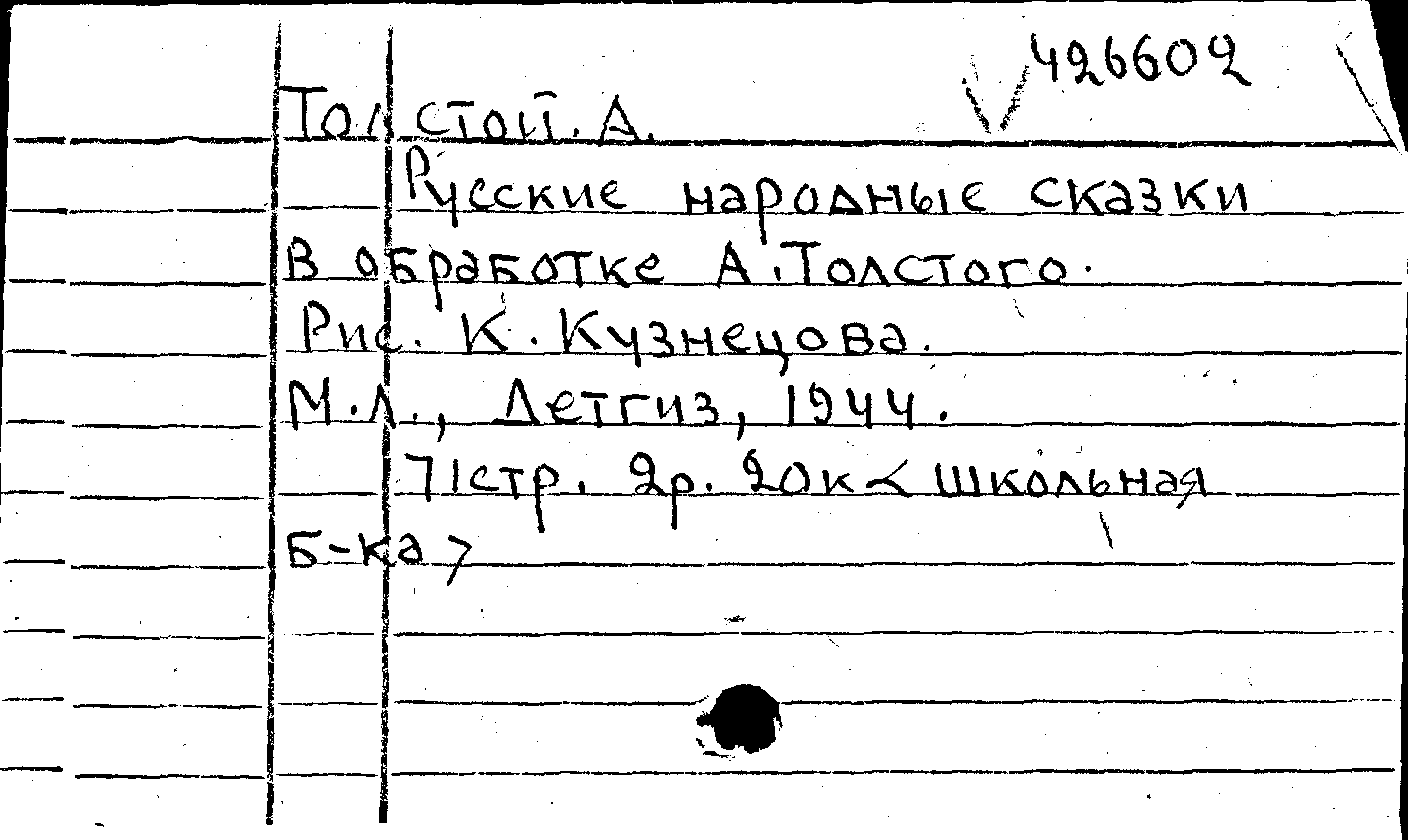 426602
Толстой. А.
Русские народные сказки
в обработке А. Толстого.
Рис. К. Кузнецова.
М.Л., Детгиз, 1944.
71стр. 2р. 20к < школьная
Б-ка >